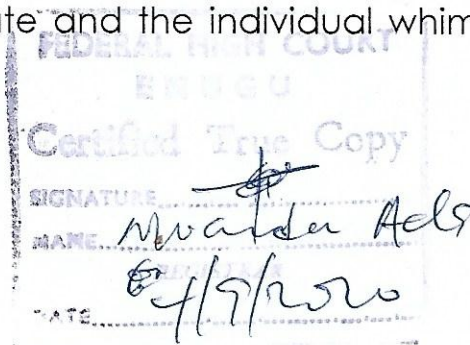 ate and the individual whim
FEDERAL HIGH COURT
ENUGU
Certified True Copy
SIGNATURE
NAME
REGISTRAR
DATE 4/9/2020